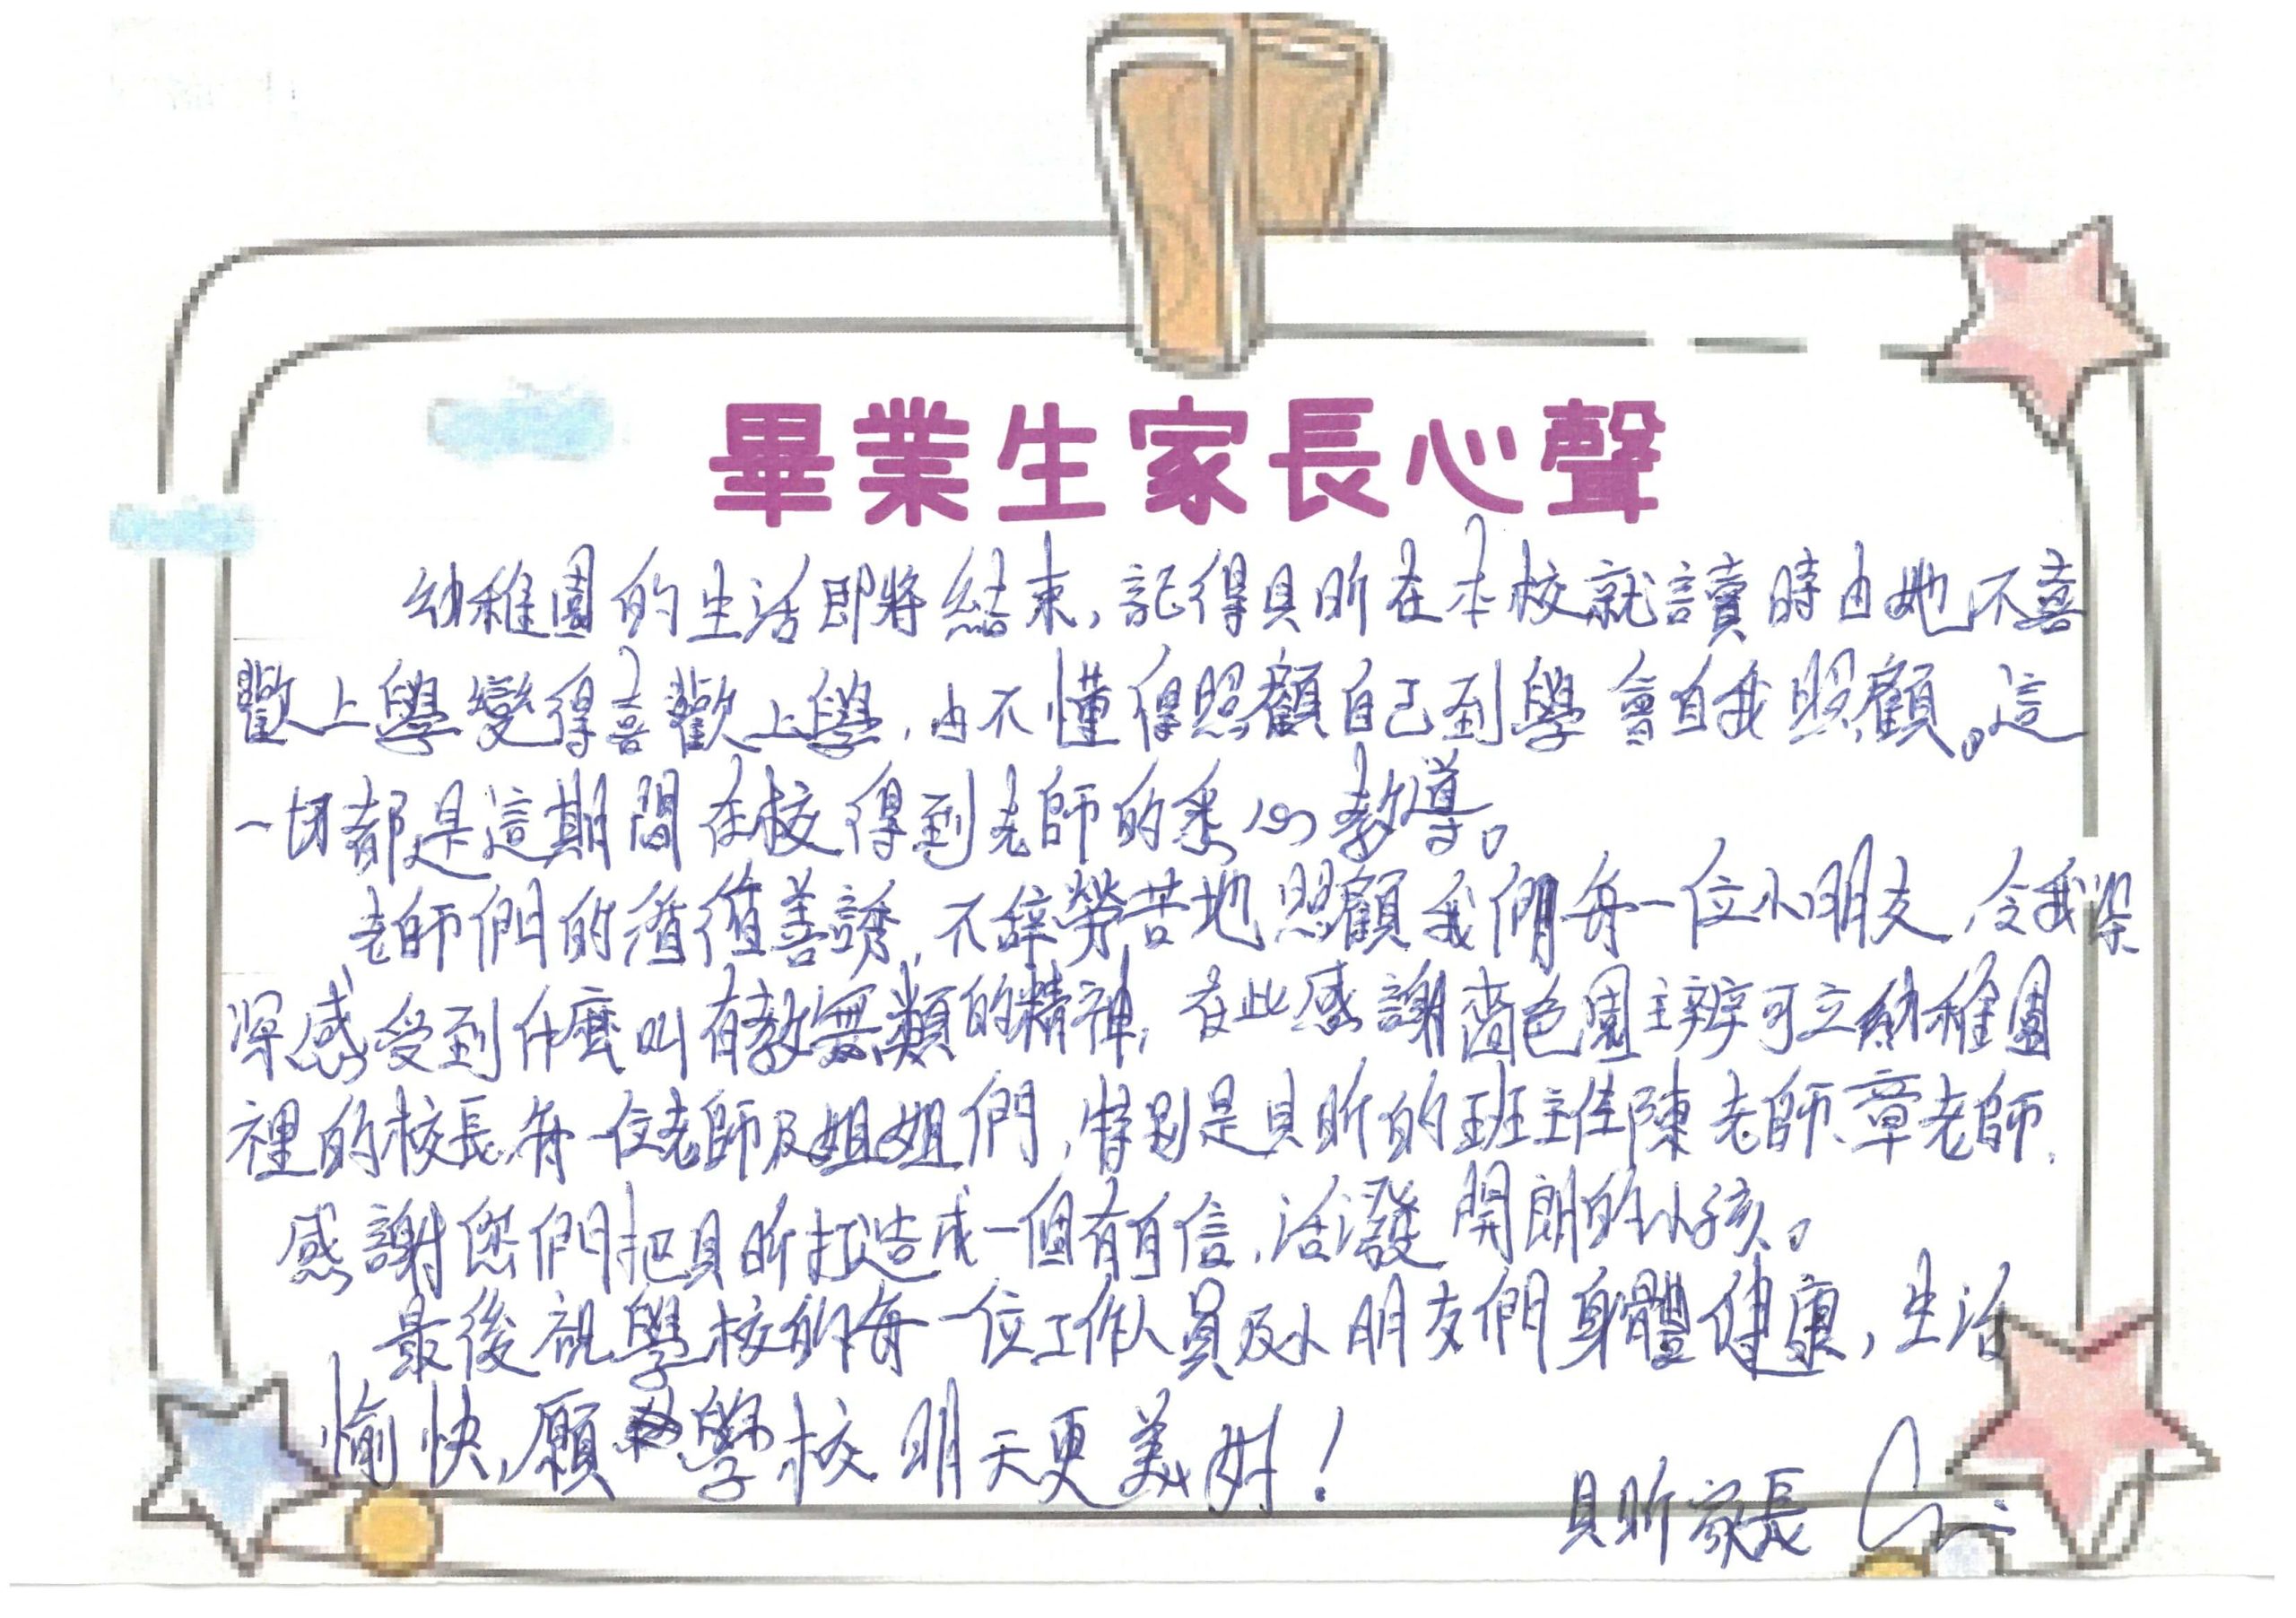 畢業生家長心聲
幼稚園的生活即將結束，記得貝昕在本校就讀時由她不喜
歡上學變得喜歡上學，由不懂得照顧自己到學會自我照顧。這
一切都是這期間在校得到老師的悉心教導。
老師們的循循善誘，不辭勞苦地照顧我們每一位小朋友，令我深
深感受到什麼叫有教無類的精神，在此感謝嗇色園主辦可立幼稚園
裡的校長、每一位老師及姐姐們，特別是貝昕的班主任陳老師、章老師，
感謝您們把貝昕打造成一個有自信，活潑開朗的小孩。
最後祝學校的每一位工作人員及小朋友們身體健康，生活
愉快，願學校明天更美好！
貝昕家長